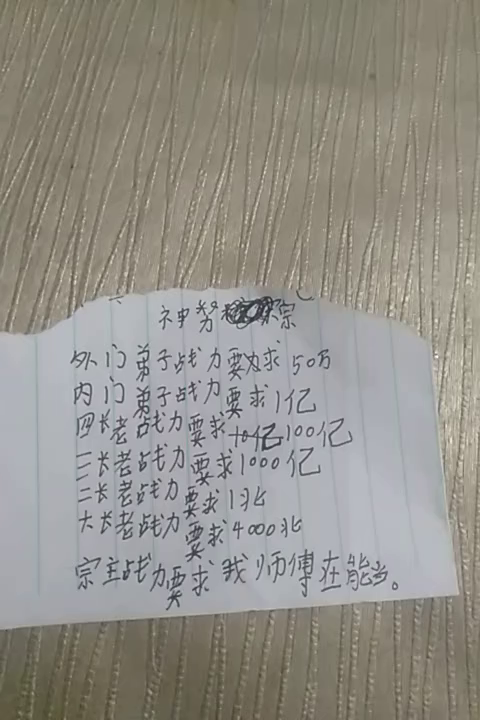 神努宗
外门弟子战力要求50万
内门弟子战力要求1亿
四长老战力要求100亿
三长老战力要求1000亿
二长老战力要求1兆
大长老战力要求4000兆
宗主战力要求我师傅在能当。